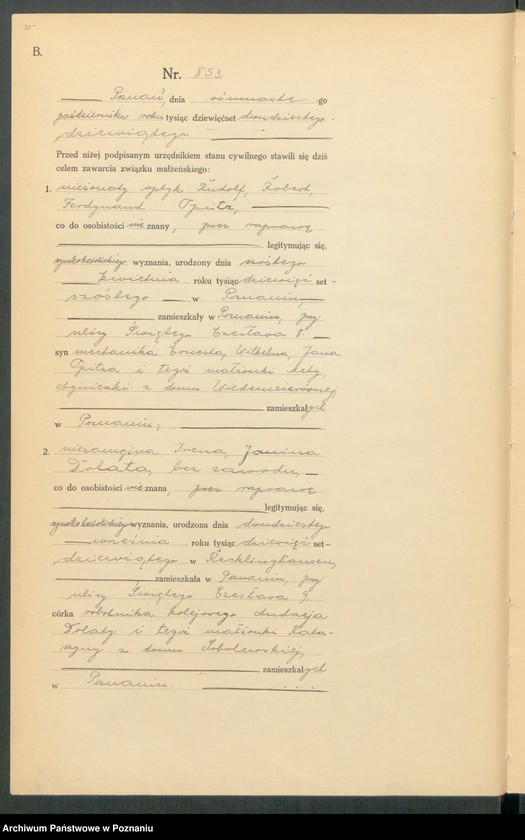 B.
Nr. 853
Poznań, dnia ośmnaste -go
października roku tysiąc dziewięćset dwudziestego
dziewiątego
Przed niżej podpisanym urzędnikiem stanu cywilnego stawili się dziś
celem zawarcia związku małżeńskiego:
1. nieżonaty optyk Rudolf, Robert,
Ferdynand
co do osobistości nie znany, przez rozprawę
legitymując się,
rzymskokatolickiego wyznania, urodzony dnia szóstego
kwietnia roku tysiąc dziewięćset-
szóstego w Poznaniu,
zamieszkały w Poznaniu, przy
ulicy Świętego Czesława 8
syn mechanika Ernesta, Wilhelma, Jana
i tegoż małżonki
Agnieszki z domu
zamieszkałych
w Poznaniu,
2. niezamężna Irena, Janina
Dolata, bez zawodu,
co do osobistości nie znana, przez rozprawę
legitymując się,
rzymskokatolickiego wyznania, urodzona dnia dwudziestego
września roku tysiąc dziewięćset-
dziewiątego w Recklinghausen,
zamieszkała w Poznaniu, przy
ulicy Świętego Czesława 9.
córka robotnika kolejowego Andrzeja
Dolaty i tegoż małżonki Kata-
rzyny z domu Sobolewskiej,
zamieszkałych
w Poznaniu.
Archiwum Państwowe w Poznaniu